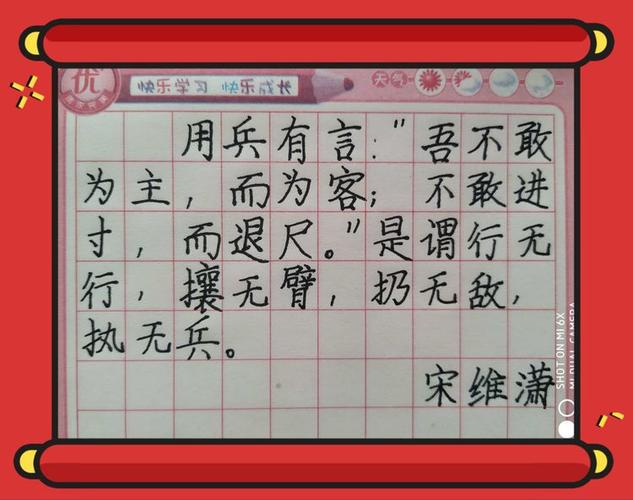 优
快乐学习 快乐成长
天气
用兵有言:"吾不敢
为主,而为客;不敢进
寸,而退尺。"是谓行无
行,攘无臂,扔无敌,
执无兵。
宋维潇
SHOT ON MI 6X
MI DUAL CAMERA